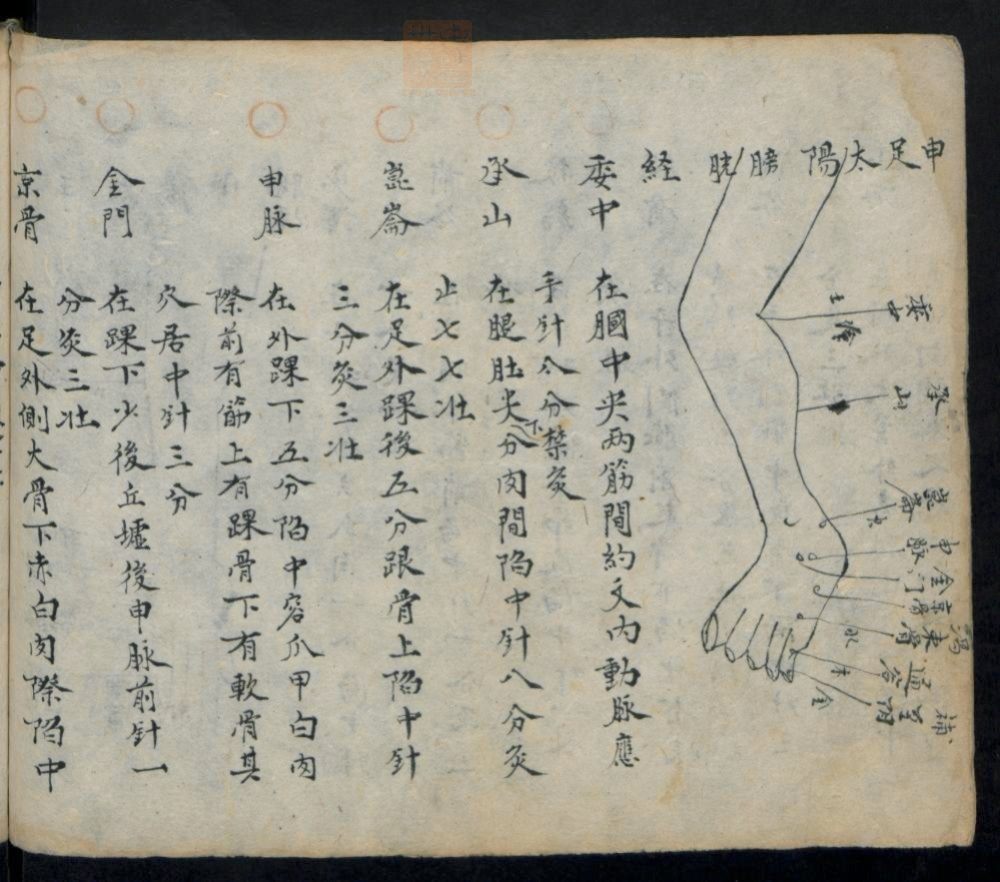 申足太陽膀胱経
委中
土
滄
承山
崑崙
火
申脉
金門
京骨
水
束骨
瀉
通谷
木
至阴
補
金
委中
在膕中央两筋間約文内動脉應
手針八分禁灸
承山
在腿肚尖下分肉間陷中針八分灸
止七七壮
崑崙
在足外踝後五分跟骨上陷中針
三分灸三壮
申脉
在外踝下五分陷中容爪甲白肉
際前有筋上有踝骨下有軟骨其
穴居中針三分
金門
在踝下少後丘墟後申脉前針一
分灸三壮
京骨
在足外側大骨下赤白肉際陷中